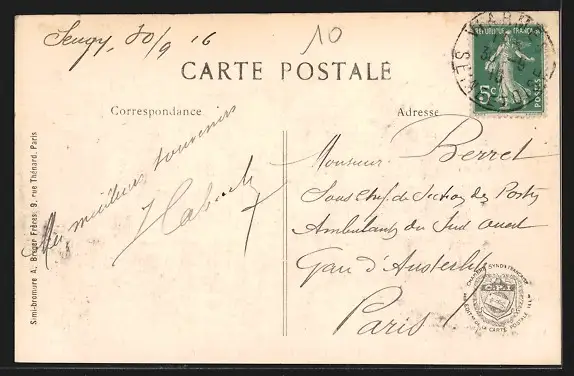 30/9 16
10
CARTE POSTALE
Correspondance
Adresse
REPUBLIQUE FRANÇAISE
5c
POSTES
VIARMES
Mes meilleurs souvenirs
Monsieur Berret
Sous Chef de Section des Postes
Ambulants du Sud ouest
Gare d'Austerlitz
Paris
Simi-bromure A. Breger Frères, 9, rue Thénard, Paris
CHAMBRE SYNDle FRANÇAISE
DE LA CARTE POSTALE ILLée